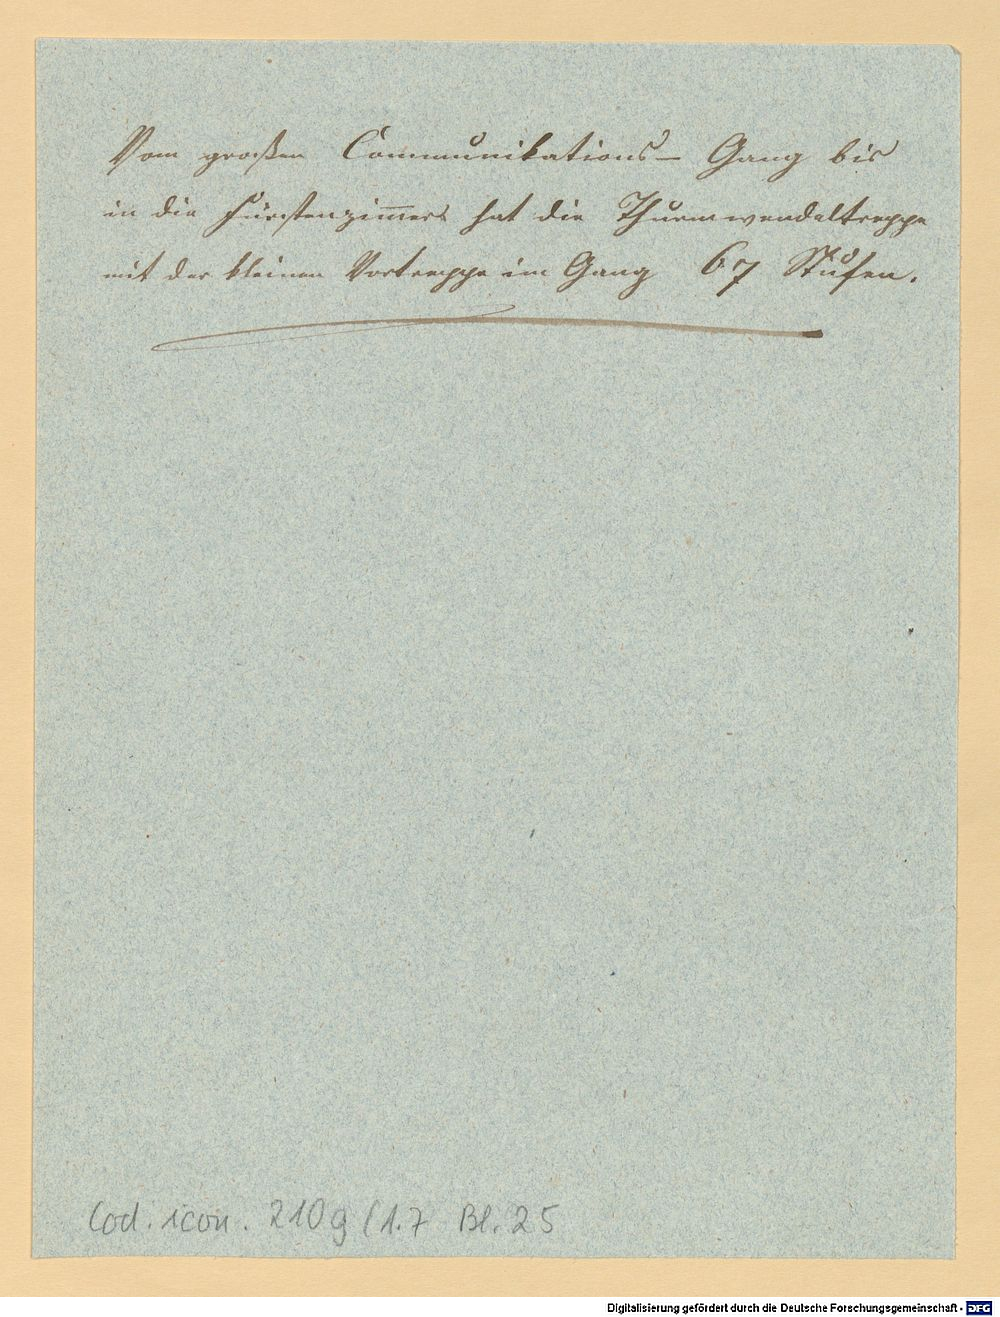 Vom großen Communikations- Gang bis
in die Fürstenzim̅ers hat die Thurmwendeltreppe
mit der kleinen Vortreppe im Gang 67 Stufen.
Cod. icon. 210g (1.7 Bl. 25
Digitalisierung gefördert durch die Deutsche Forschungsgemeinschaft - DFG